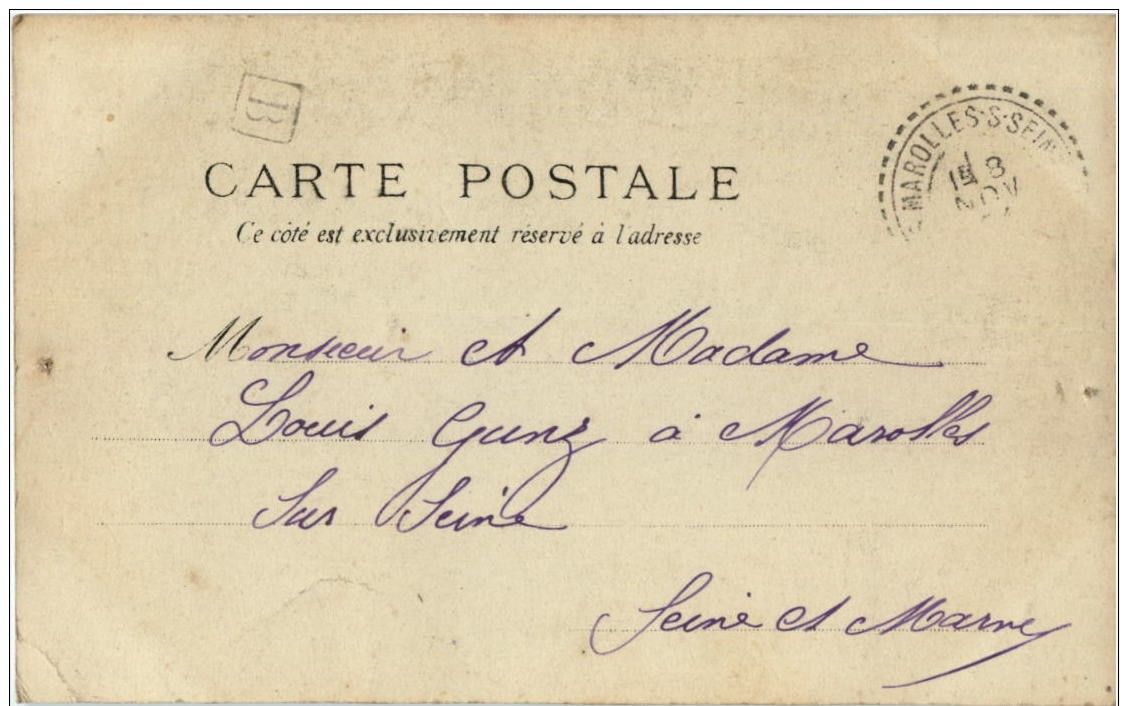 B
CARTE POSTALE
Ce côté est exclusivement réservé à l'adresse
MAROLLES-S-SEINE
8
NOV
Monsieur et Madame
Louis Gunz à Marolles
Sur Seine
Seine et Marne